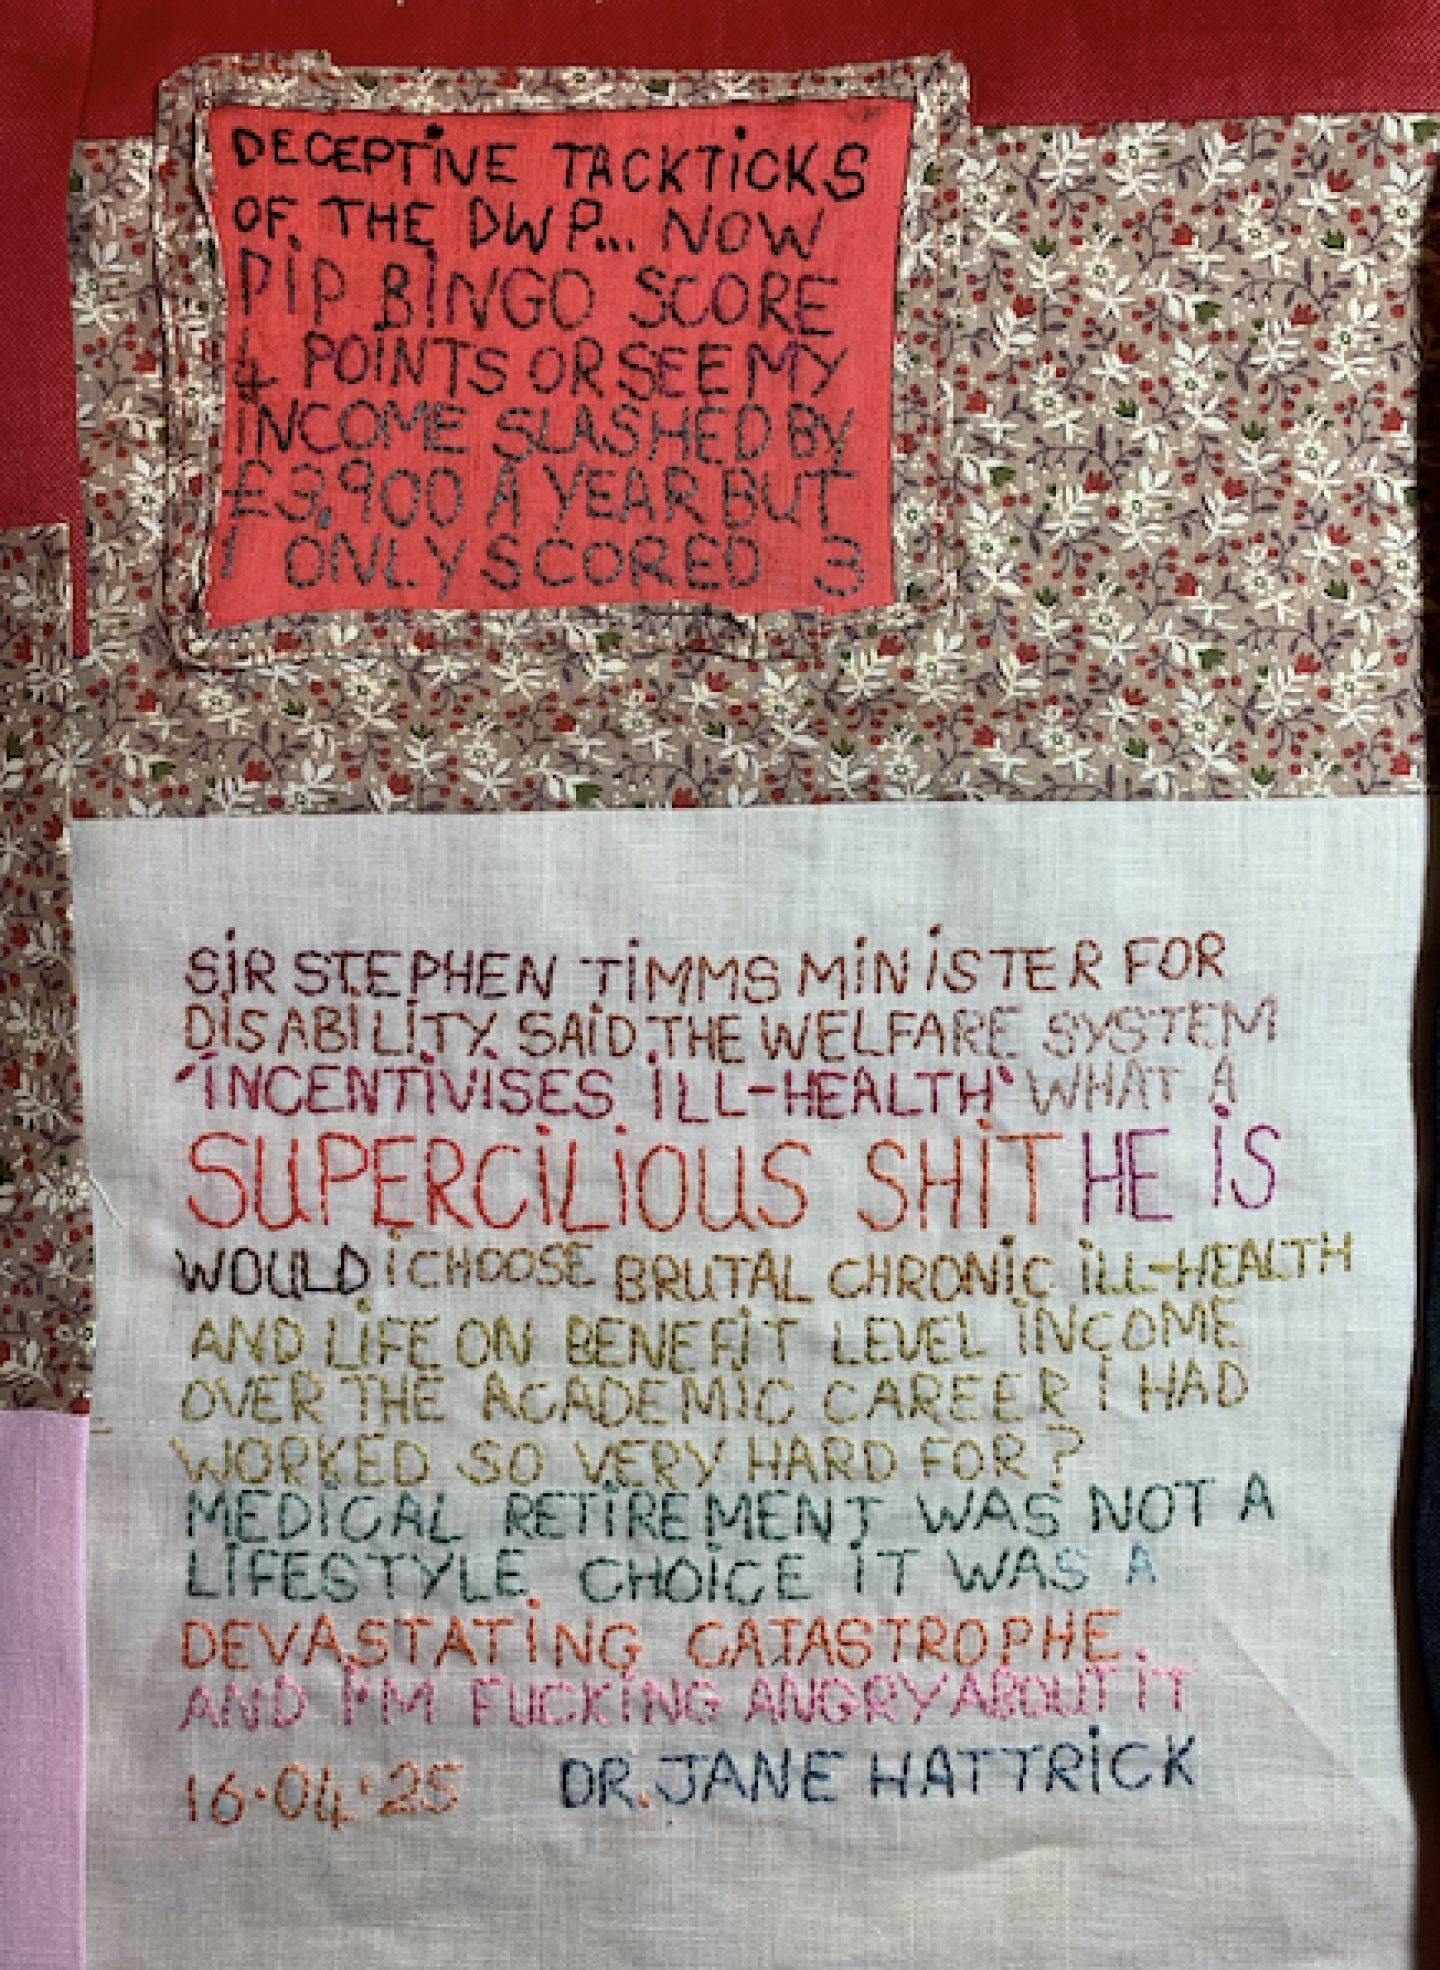 DECEPTiVE TACKTiCKS
OF THE DWP... NOW
PiP BiNGO SCORE
4 POiNTS OR SEE MY
iNCOME SLASHED BY
£3,900 A YEAR BUT
I ONLY SCORED 3
SiR STEPHEN TiMMS MiNiSTER FOR
DiSABiLiTY SAiD THE WELFARE SYSTEM
'iNCENTiViSES iLL-HEALTH' WHAT A
SUPERCiLiOUS SHiT HE iS
WOULD i CHOOSE BRUTAL CHRONiC iLL-HEALTH
AND LiFE ON BENEFiT LEVEL iNCOME
OVER THE ACADEMiC CAREER I HAD
WORKED SO VERY HARD FOR?
MEDiCAL RETiREMENT WAS NOT A
LiFESTYLE CHOiCE iT WAS A
DEVASTATiNG CATASTROPHE.
AND i'M FUCKiNG ANGRY ABOUT iT
16.04.25 DR. JANE HATTRiCK